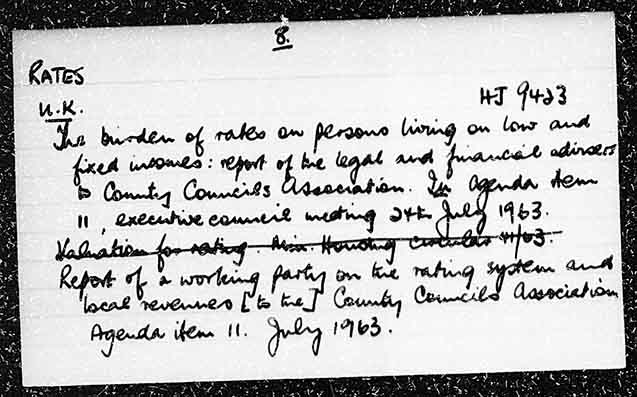 8.
RATES
U.K. HJ 9423
The burden of rates on persons living on low and
fixed incomes: report of the legal and financial advisers
to County Councils Association. In Agenda item
11, executive council meeting 24th July 1963.
Valuation for rating. Min. Housing circular 41/63.
Report of a working party on the rating system and
local revenues [to the] County Councils Association
Agenda item 11. July 1963.